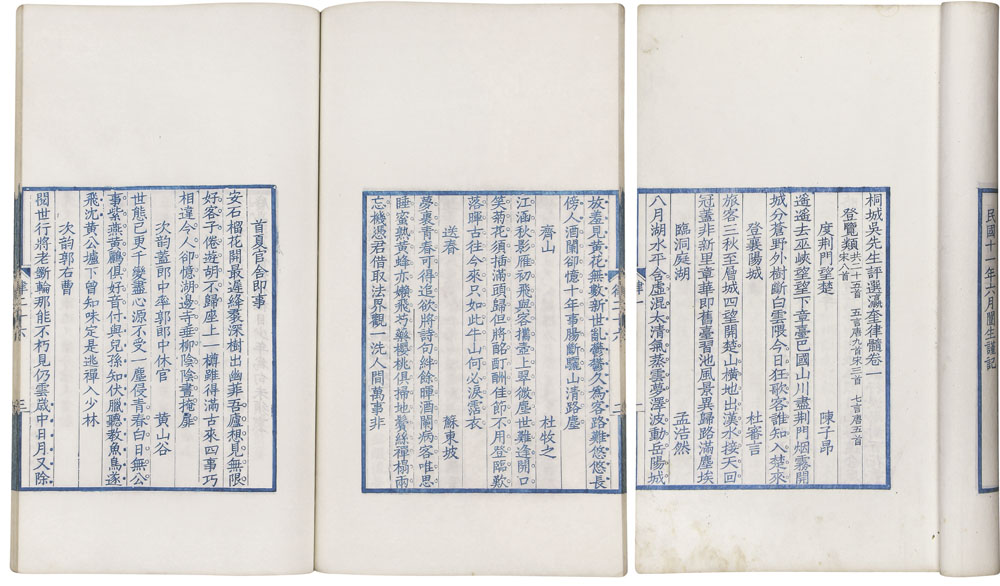 民國十一年六月闓生謹記
桐城吳先生評選瀛奎律髓卷一
登覽類 共二十五首 五言唐九首宋三首 七言唐五首宋八首
度荆門望楚 陳子昂
遙遙去巫峽望望下章臺巴國山川盡荆門烟霧開
城分蒼野外樹斷白雲隈今日狂歌客誰知入楚來
登襄陽城 杜審言
旅客三秋至層城四望開楚山橫地出漢水接天回
冠蓋非新里章華即舊臺習池風景異歸路滿塵埃
臨洞庭湖 孟浩然
八月湖水平含虛混太清氣蒸雲夢澤波動岳陽城
律一
故羞見黃花無數新世亂鬱鬱久為客路難悠悠長
傍人酒闌却憶十年事腸斷驪山清路塵
齊山 杜牧之
江涵秋影雁初飛與客攜壺上翠微塵世難逢開口
笑菊花須插滿頭歸但將酩酊酬佳節不用登臨歎
落暉古往今來只如此牛山何必淚霑衣
送春 蘇東坡
夢裏青春可得追欲將詩句絆餘暉酒闌病客唯思
睡蜜熟黃蜂亦嬾飛芍藥櫻桃俱掃地鬢絲禪榻兩
忘機憑君借取法界觀一洗人間萬事非
首夏官舍即事
安石榴花開最遲絳裠深樹出幽菲吾廬想見無限
好客子倦遊胡不歸座上一樽雖得滿古來四事巧
相違令人却憶湖邊寺垂柳陰陰晝掩扉
次韵蓋郎中率郭郎中休官 黃山谷
世態已更千變盡心源不受一塵侵青春白日無公
事紫燕黃鸝俱好音付與兒孫知伏臘聽教魚鳥遂
飛沈黃公壚下曾知味定是逃禪入少林
次韵郭右曹
閱世行將老斲輪那能不朽見仍雲歲中日月又除